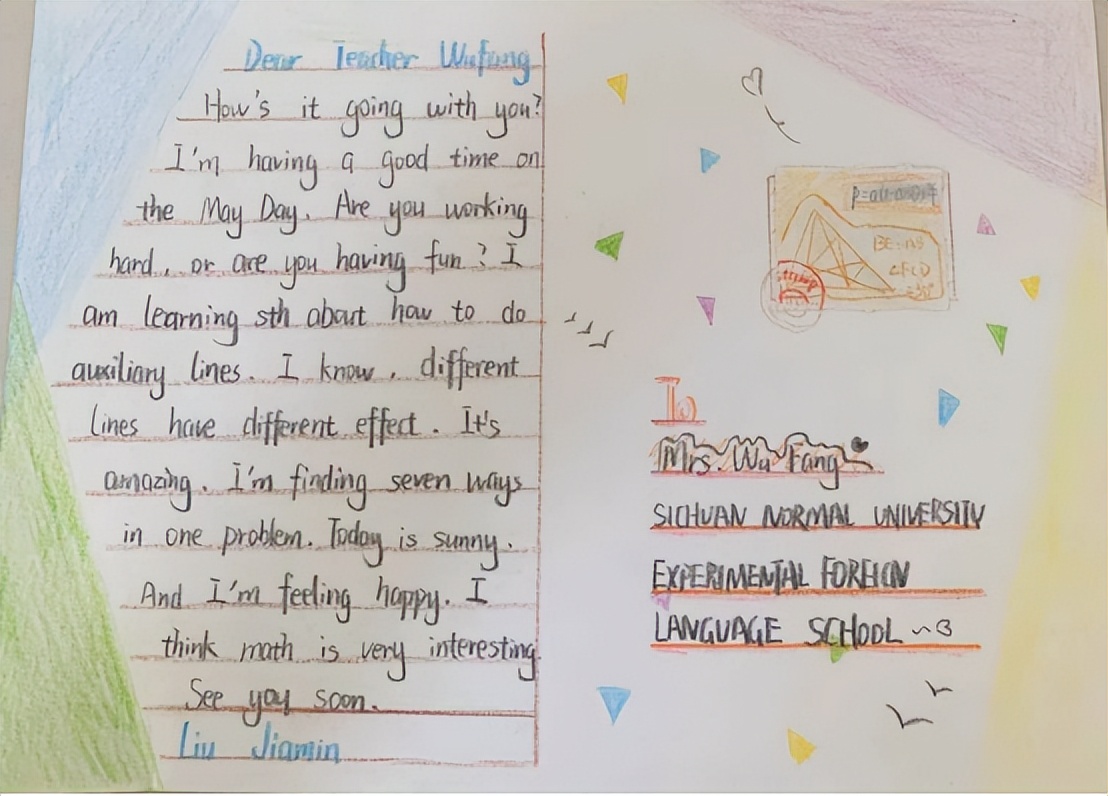 Dear Teacher Wufang
How's it going with you?
I'm having a good time on
the May Day. Are you working
hard, or are you having fun? I
am learning sth about how to do
auxiliary lines. I know, different
lines have different effect. It's
amazing. I'm finding seven ways
in one problem. Today is sunny.
And I'm feeling happy. I
think math is very interesting
See you soon.
Liu Jiamin
To
Mrs. Wu Fang
SICHUAN NORMAL UNIVERSITY
EXPERIMENTAL FOREIGN
LANGUAGE SCHOOL ~3